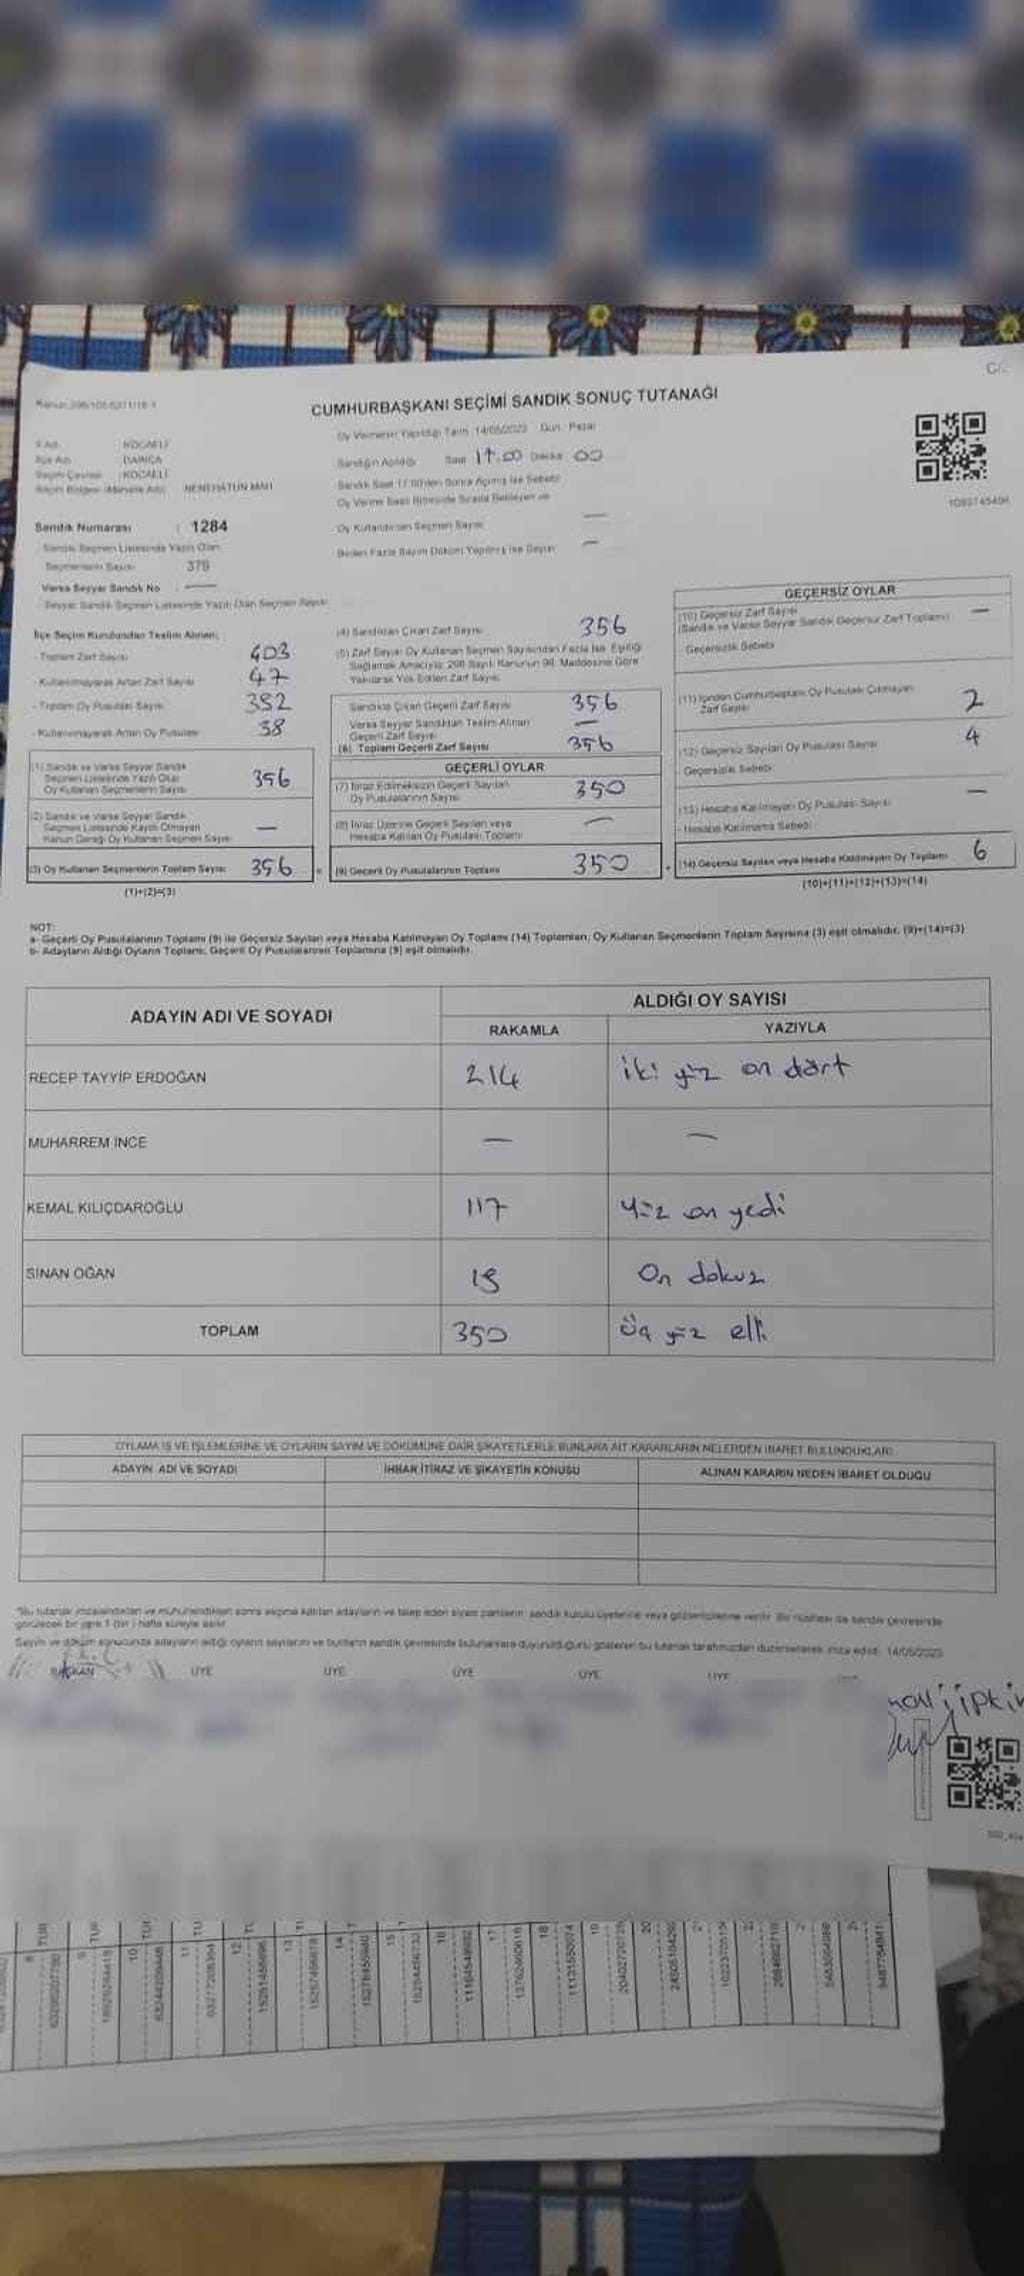 CUMHURBAŞKANI SEÇİMİ SANDIK SONUÇ TUTANAĞI
Oy Vermenin Yapıldığı Tarih 14/05/2023 Gün Pazar
İl Adı KOCAELİ
İlçe Adı DARICA
Seçim Çevresi KOCAELİ
Seçim Bölgesi (Mahalle Adı) NENEHATUN MAH
Sandığın Açıldığı Saat 17.00 Dakika 00
Sandık Saat 17.00'den Sonra Açılmış İse Sebebi
Oy Verme Saati Bitiminde Sırada Bekleyen ve
Oy Kullandırılan Seçmen Sayısı —
Birden Fazla Sayım Döküm Yapılmış İse Sayısı —
Sandık Numarası : 1284
Sandık Seçmen Listesinde Yazılı Olan
Seçmenlerin Sayısı 379
Varsa Seyyar Sandık No —
Seyyar Sandık Seçmen Listesinde Yazılı Olan Seçmen Sayısı
İlçe Seçim Kurulundan Teslim Alınan;
- Toplam Zarf Sayısı 403
- Kullanılmayarak Artan Zarf Sayısı 47
- Toplam Oy Pusulası Sayısı 392
- Kullanılmayarak Artan Oy Pusulası 38
(1) Sandık ve Varsa Seyyar Sandık
Seçmen Listesinde Yazılı Olup
Oy Kullanan Seçmenlerin Sayısı 356
(2) Sandık ve Varsa Seyyar Sandık
Seçmen Listesinde Kayıtlı Olmayan
Kanun Gereği Oy Kullanan Seçmen Sayısı —
(3) Oy Kullanan Seçmenlerin Toplam Sayısı 356
(1)+(2)=(3)
(4) Sandıktan Çıkan Zarf Sayısı 356
(5) Zarf Sayısı Oy Kullanan Seçmen Sayısından Fazla İse, Eşitliği
Sağlamak Amacıyla; 298 Sayılı Kanunun 98. Maddesine Göre
Yakılarak Yok Edilen Zarf Sayısı
Sandıkta Çıkan Geçerli Zarf Sayısı 356
Varsa Seyyar Sandıktan Teslim Alınan
Geçerli Zarf Sayısı —
(6) Toplam Geçerli Zarf Sayısı 356
GEÇERLİ OYLAR
(7) İtiraz Edilmeksizin Geçerli Sayılan
Oy Pusulalarının Sayısı 350
(8) İtiraz Üzerine Geçerli Sayılan veya
Hesaba Katılan Oy Pusulası Toplamı —
(9) Geçerli Oy Pusulalarının Toplamı 350
GEÇERSİZ OYLAR
(10) Geçersiz Zarf Sayısı —
(Sandık ve Varsa Seyyar Sandık Geçersiz Zarf Toplamı)
Geçersizlik Sebebi
(11) İçinden Cumhurbaşkanı Oy Pusulası Çıkmayan
Zarf Sayısı 2
(12) Geçersiz Sayılan Oy Pusulası Sayısı 4
Geçersizlik Sebebi
(13) Hesaba Katılmayan Oy Pusulası Sayısı —
Hesaba Katılmama Sebebi
(14) Geçersiz Sayılan veya Hesaba Katılmayan Oy Toplamı 6
(10)+(11)+(12)+(13)=(14)
NOT:
a- Geçerli Oy Pusulalarının Toplamı (9) ile Geçersiz Sayılan veya Hesaba Katılmayan Oy Toplamı (14) Toplamları, Oy Kullanan Seçmenlerin Toplam Sayısına (3) eşit olmalıdır. (9)+(14)=(3)
b- Adayların Aldığı Oyların Toplamı, Geçerli Oy Pusulalarının Toplamına (9) eşit olmalıdır.
ADAYIN ADI VE SOYADI
ALDIĞI OY SAYISI
RAKAMLA YAZIYLA
RECEP TAYYİP ERDOĞAN 214 iki yüz on dört
MUHARREM İNCE — —
KEMAL KILIÇDAROĞLU 117 yüz on yedi
SİNAN OĞAN 19 On dokuz
TOPLAM 350 üç yüz elli
OYLAMA İŞ VE İŞLEMLERİNE VE OYLARIN SAYIM VE DÖKÜMÜNE DAİR ŞİKAYETLERLE BUNLARA AİT KARARLARIN NELERDEN İBARET BULUNDUKLARI
ADAYIN ADI VE SOYADI İHBAR, İTİRAZ VE ŞİKAYETİN KONUSU ALINAN KARARIN NEDEN İBARET OLDUĞU
*Bu tutanak imzalandıktan ve mühürlendikten sonra seçime katılan adayların ve talep eden siyasi partilerin sandık kurulu üyelerine veya gözlemcilerine verilir. Bir nüshası da sandık çevresinde
görülecek bir yere 1 (bir) hafta süreyle asılır.
Sayım ve döküm sonucunda adayların aldığı oyların sayılarını ve bunların sandık çevresinde bulunanlara duyurulduğunu gösteren bu tutanak tarafımızdan düzenlenerek imza edildi. 14/05/2023
BAŞKAN ÜYE ÜYE ÜYE ÜYE ÜYE